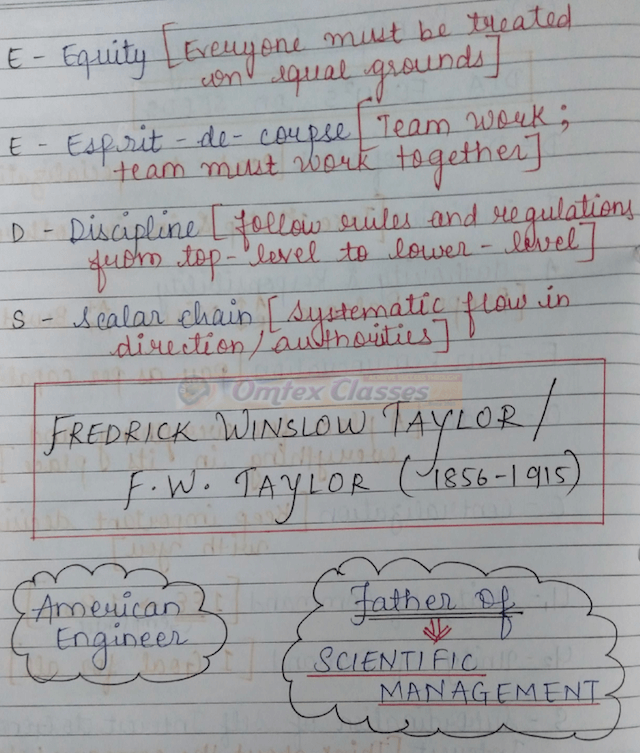 E - Equity [Everyone must be treated
on equal grounds]
E - Esprit - de - coupse [Team work ;
team must work together]
D - Discipline [follow rules and regulations
from top - level to lower - level]
S - Scalar chain [systematic flow in
direction / authorities]
Omtex Classes
FREDRICK WINSLOW TAYLOR /
F. W. TAYLOR (1856-1915)
American
Engineer
Father Of
SCIENTIFIC
MANAGEMENT